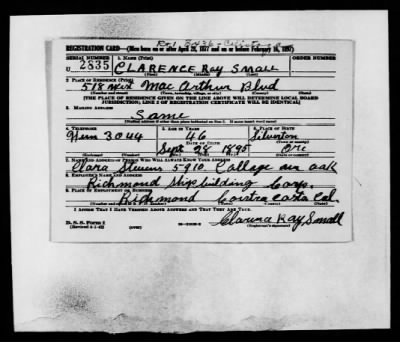 REGISTRATION CARD—(Men born on or after April 28, 1877 and on or before February 16, 1897)
SERIAL NUMBER 1. NAME (Print) ORDER NUMBER
U 2835 CLARENCE Ray Small
2. PLACE OF RESIDENCE (Print)
518 Mac Arthur Blvd
(Number and street) (Town, township, village, or city) (County) (State)
[THE PLACE OF RESIDENCE GIVEN ON THE LINE ABOVE WILL DETERMINE LOCAL BOARD
JURISDICTION; LINE 2 OF REGISTRATION CERTIFICATE WILL BE IDENTICAL]
3. MAILING ADDRESS
Same
[Mailing address if other than place indicated on line 2. If same insert word same]
4. TELEPHONE 5. AGE IN YEARS 6. PLACE OF BIRTH
3044 46 Silverton
DATE OF BIRTH
Sept 28 1895 Ore
7. NAME AND ADDRESS OF PERSON WHO WILL ALWAYS KNOW YOUR ADDRESS
Clara Stevens 5910 College av oak
8. EMPLOYER'S NAME AND ADDRESS
Richmond Shipbuilding Corp.
9. PLACE OF EMPLOYMENT OR BUSINESS
Richmond Contra Costa Cal.
(Number and street or R. F. D. number) (Town) (County) (State)
I AFFIRM THAT I HAVE VERIFIED ABOVE ANSWERS AND THAT THEY ARE TRUE.
D. S. S. Form 1 Clarence Ray Small
(Revised 4-1-42) (over) (Registrant's signature)